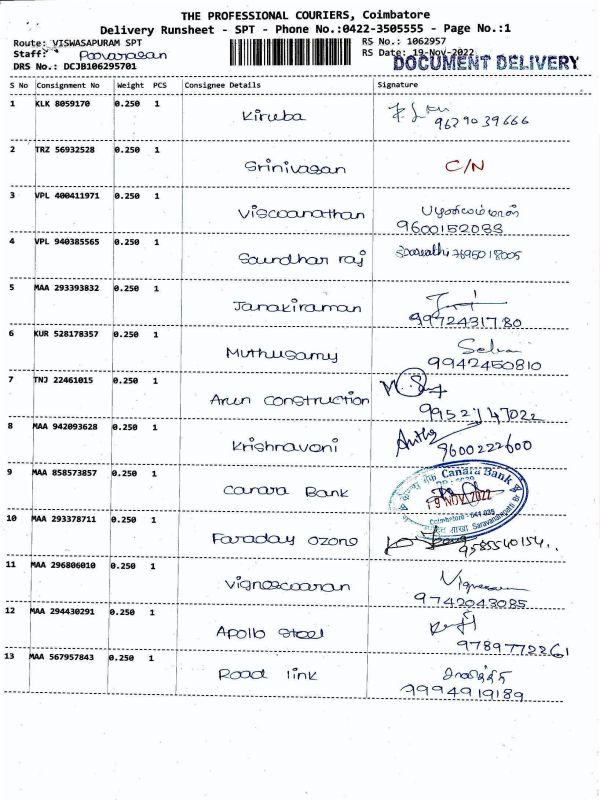 THE PROFESSIONAL COURIERS, Coimbatore
Delivery Runsheet - SPT - Phone No.:0422-3505555 - Page No.:1
Route: VISWASAPURAM SPT RS No.: 1062957
Staff: RS Date: 19-Nov-2022
DOCUMENT DELIVERY
DRS No.: DCJB106295701
S No Consignment No Weight PCS Consignee Details Signature
1 KLK 8059170 0.250 1 Kiruba
9629039666
2 TRZ 56932528 0.250 1 Srinivasan C/N
3 VPL 400411971 0.250 1 Viscoanathan பழனியம்மாள்
9600152033
4 VPL 940385565 0.250 1 Soundhar raj 7695018005
5 MAA 293393832 0.250 1 Janakiraman
9972431780
6 KUR 528178357 0.250 1 Muthusamy Selvi
9942450810
7 TNJ 22461015 0.250 1 Arun construction
9952747022
8 MAA 942093628 0.250 1 Krishnavoni Anitha
9600222600
9 MAA 858573857 0.250 1 Canara Bank केनरा बैंक Canara Bank
19 NOV 2022
Coimbatore - 641 035
Saravanampatti Br
10 MAA 293378711 0.250 1 Faraday ozone 9585540154
11 MAA 296806010 0.250 1 Vignoscoaran
9742043085
12 MAA 294430291 0.250 1 Apollo Steel
9789772261
13 MAA 567957843 0.250 1 Road link
9994919189